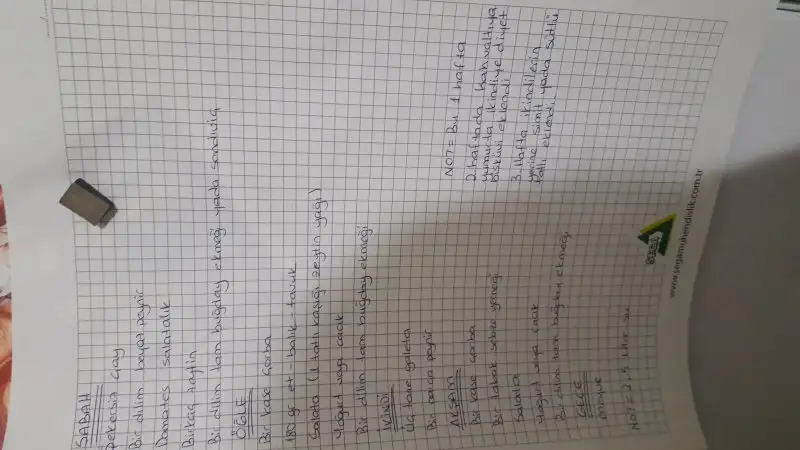 SABAH
Şekersiz çay
Bir dilim beyaz peynir
Domates salatalık
Birkaç zeytin
Bir dilim tam buğday ekmeği yada sandiviç
ÖĞLE
Bir kase çorba
180 gr et - balık - tavuk
Salata (1 tatlı kaşığı zeytin yağı)
Yoğurt veya cacık
Bir dilim tam buğday ekmeği
İKİNDİ
Üç tane galeta
Bir parça peynir
AKŞAM
Bir kase çorba
Bir tabak sebze yemeği
Salata
Yoğurt veya cacık
Bir dilim tam buğday ekmeği
GECE
meyve
NOT= 2.5 litre su
NOT= Bu 1 hafta
2. haftada kahvaltıya
yumurta ikindiye diyet
bisküvi eklendi
3. Hafta ikindilerin
yerine simit yada sütlü
tatlı eklendi
www.segamuhendislik.com.tr